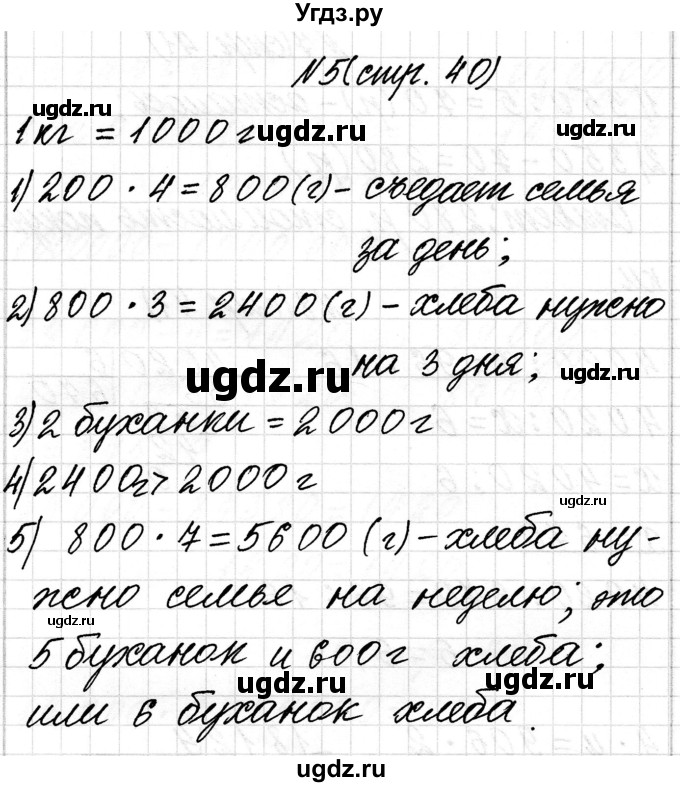 Угдз.ру
№5(стр. 40)
ugdz.ru
1кг = 1000г ugdz.ru
1) 200 · 4 = 800(г) - съедает семья
ugdz.ru
за день;
ugdz.ru
2) 800 · 3 = 2400(г) - хлеба нужно
ugdz.ru
на 3 дня; ugdz.ru
3) 2 буханки = 2000г
4) 2400г > 2000г
ugdz.ru
5) 800 · 7 = 5600 (г) - хлеба ну-
жно семье на неделю; это
ugdz.ru
5 буханок и 600г хлеба;
ugdz.ru ugdz.ru
или 6 буханок хлеба.
ugdz.ru